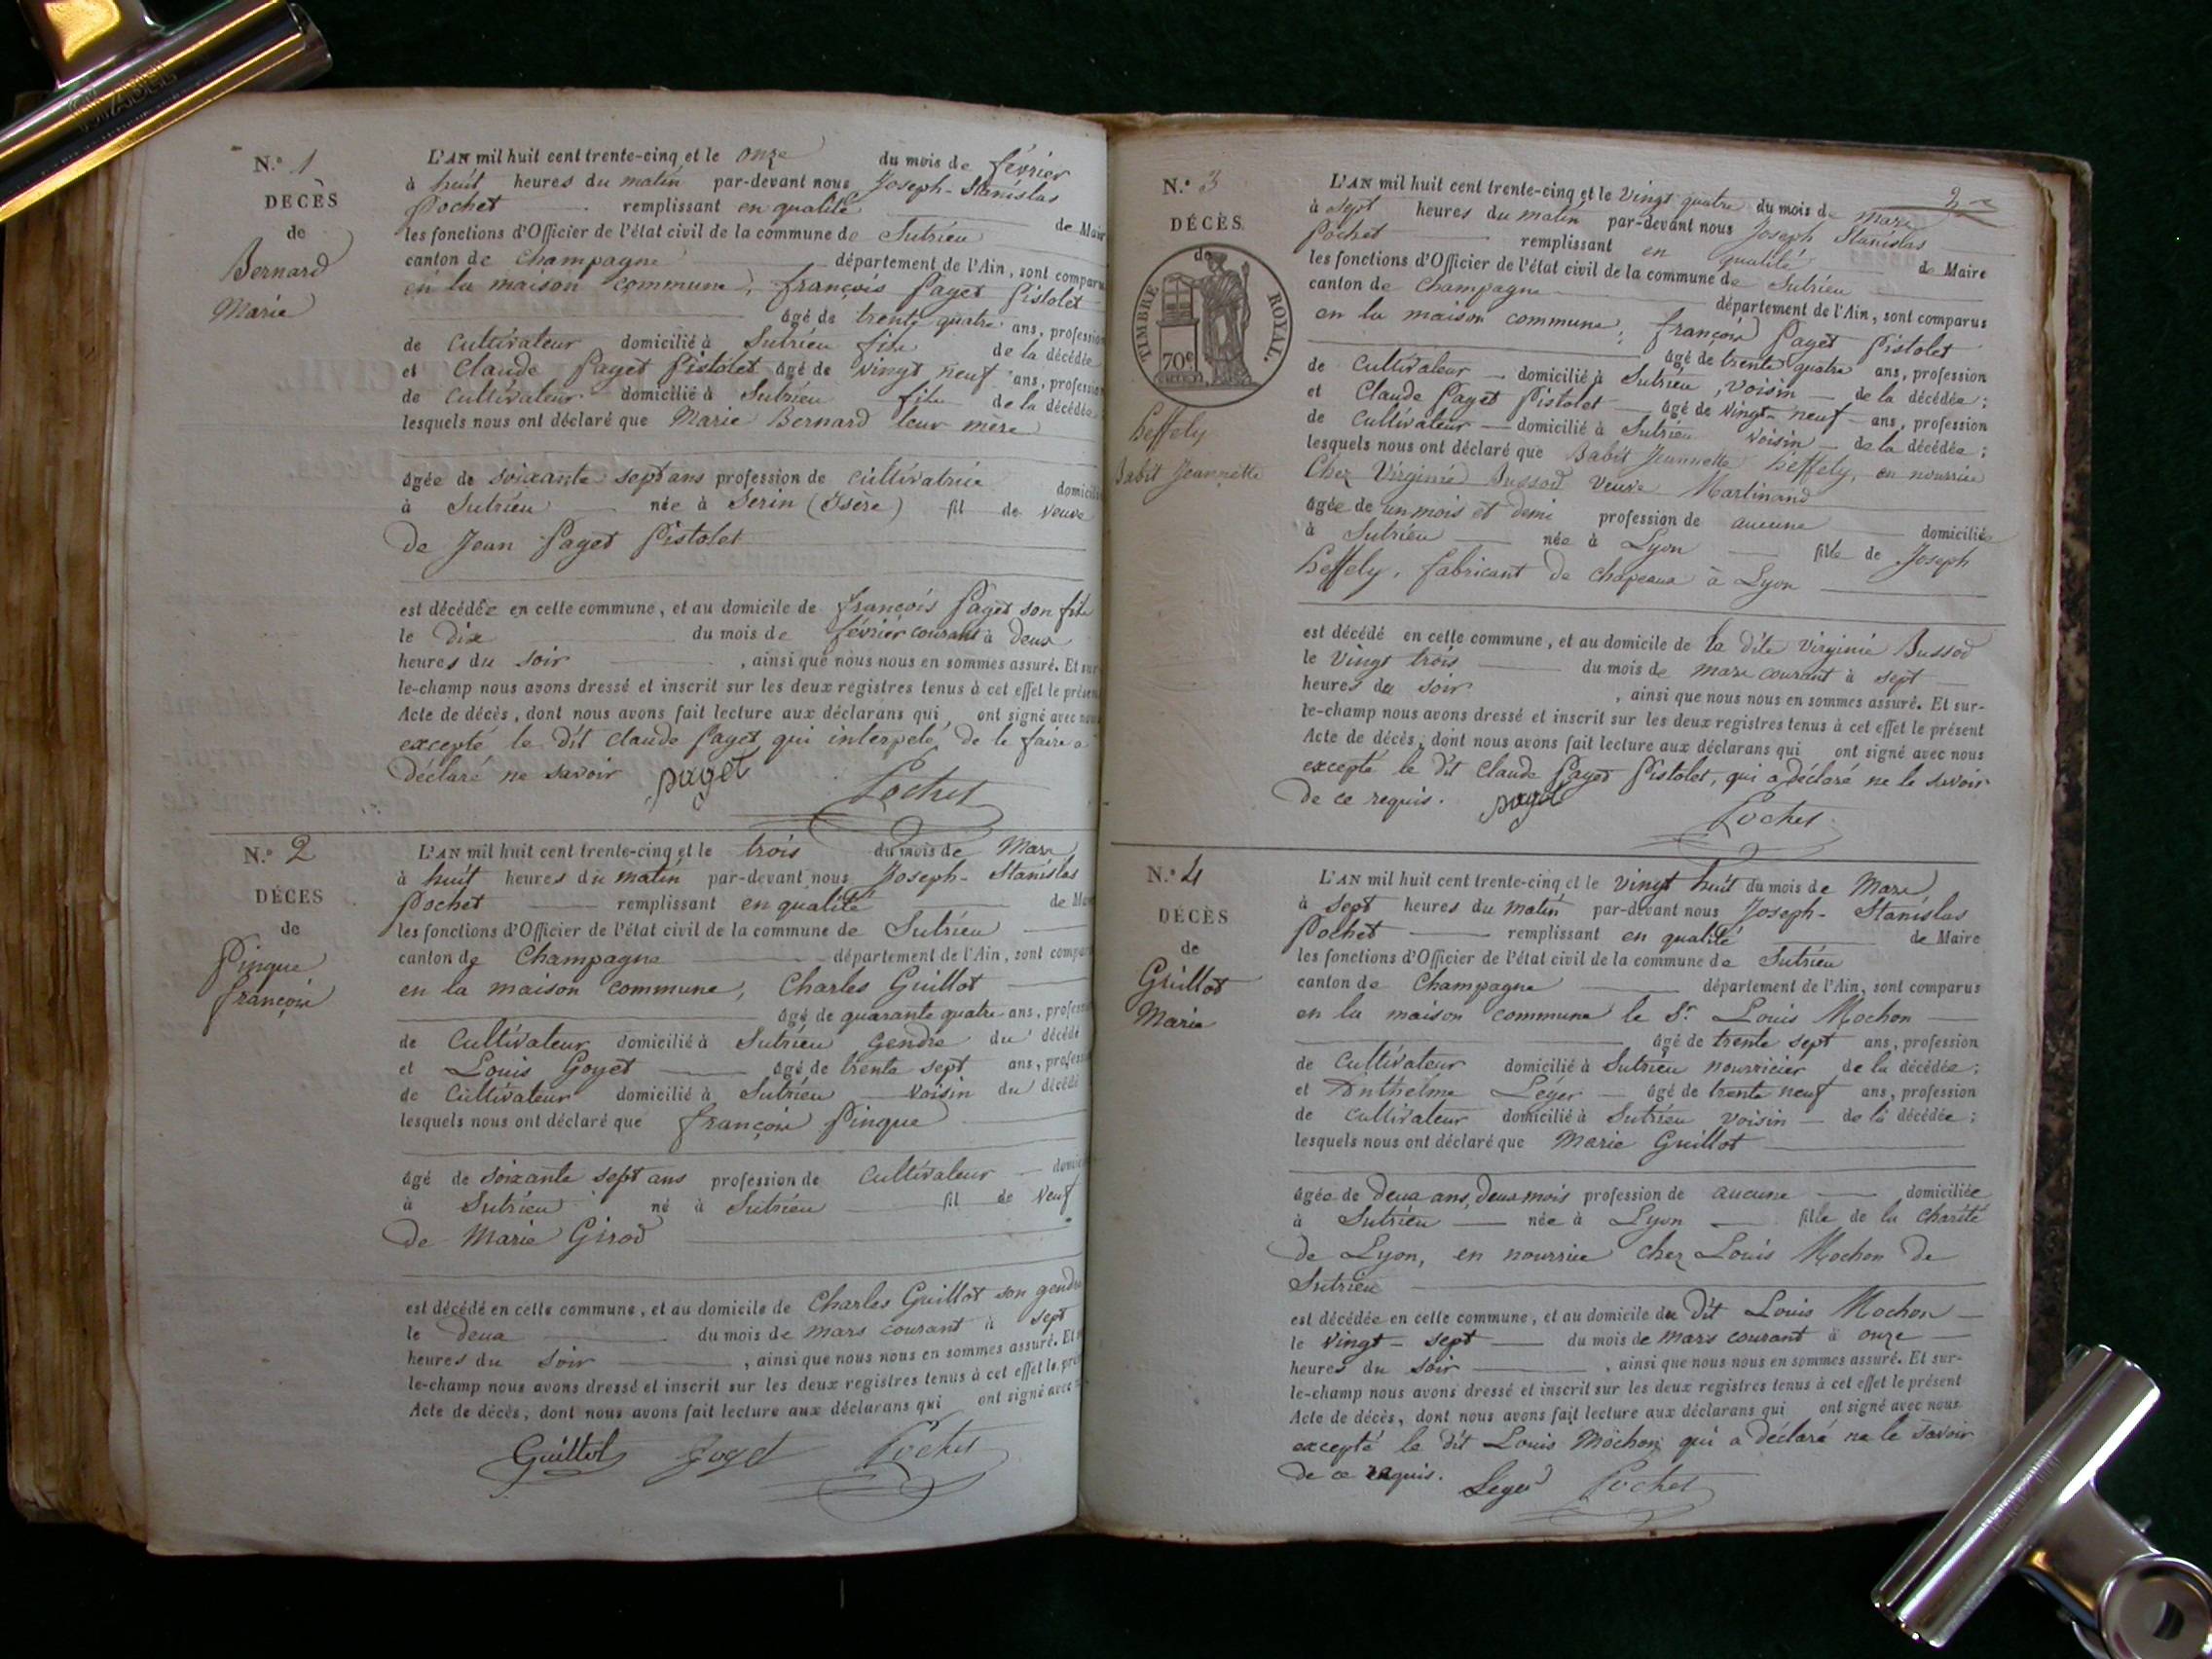 N.º 1
DÉCÈS
de
Bernard
Marie
L'AN mil huit cent trente-cinq et le onze du mois de février
à huit heures du matin par-devant nous Joseph-Stanislas
Pochet remplissant en qualité de Maire
les fonctions d'Officier de l'état civil de la commune de Sutrieu
canton de Champagne département de l'Ain, sont comparus
en la maison commune, françois Paget Pistolet
âgé de trente quatre ans, profession
de Cultivateur domicilié à Sutrieu fils de la décédée
et Claude Paget Pistolet âgé de vingt neuf ans, profession
de Cultivateur domicilié à Sutrieu fils de la décédée
lesquels nous ont déclaré que Marie Bernard leur mère
âgée de soixante sept ans profession de cultivatrice domicili
à Sutrieu née à Serin (Isère) fil de veuve
de Jean Paget Pistolet
est décédée en cette commune, et au domicile de françois Paget son fils
le dix du mois de février courant à deux
heures du soir, ainsi que nous nous en sommes assuré. Et sur
le-champ nous avons dressé et inscrit sur les deux registres tenus à cet effet le présen
Acte de décès, dont nous avons fait lecture aux déclarans qui ont signé avec nous
excepté le dit Claude Paget qui interpelé de le faire a
déclaré ne savoir paget Pochet
N.º 2
DÉCÈS
de
Pingue
françois
L'AN mil huit cent trente-cinq et le trois du mois de Mars
à huit heures du matin par-devant nous Joseph-Stanislas
Pochet remplissant en qualité de Ma
les fonctions d'Officier de l'état civil de la commune de Sutrieu
canton de Champagne département de l'Ain, sont compa
en la maison commune, Charles Guillot
âgé de quarante quatre ans, profess
de Cultivateur domicilié à Sutrieu gendre du décédé
et Louis Goyet âgé de trente sept ans, profess
de Cultivateur domicilié à Sutrieu voisin du décédé
lesquels nous ont déclaré que françois Pingue
âgé de soixante sept ans profession de cultivateur domici
à Sutrieu né à Sutrieu fil de veuf
de Marie Girod
est décédé en cette commune, et au domicile de Charles Guillot son gendre
le deux du mois de mars courant à sept
heures du soir, ainsi que nous nous en sommes assuré. Et
le-champ nous avons dressé et inscrit sur les deux registres tenus à cet effet le pré
Acte de décès, dont nous avons fait lecture aux déclarans qui ont signé avec
Guillot Goyet Pochet
2
N.º 3
DÉCÈS.
de
TIMBRE ROYAL.
70c
heffely
Babit Jeannette
L'AN mil huit cent trente-cinq et le vingt quatre du mois de mars
à sept heures du matin par-devant nous Joseph Stanislas
Pochet remplissant en qualité de Maire
les fonctions d'Officier de l'état civil de la commune de Sutrieu
canton de Champagne département de l'Ain, sont comparus
en la maison commune, françois Paget Pistolet
âgé de trente quatre ans, profession
de Cultivateur domicilié à Sutrieu, voisin de la décédée;
et Claude Paget Pistolet âgé de vingt-neuf ans, profession
de Cultivateur domicilié à Sutrieu voisin de la décédée;
lesquels nous ont déclaré que Babit Jeannette heffely, en nourrice
Chez Virginie Bussod veuve Martinand
âgée de un mois et demi profession de aucune domiciliée
à Sutrieu née à Lyon fille de Joseph
heffely, fabricant de chapeaux à Lyon
est décédé en cette commune, et au domicile de la dite Virginie Bussod
le vingt trois du mois de mars courant à sept
heures du soir, ainsi que nous nous en sommes assuré. Et sur-
le-champ nous avons dressé et inscrit sur les deux registres tenus à cet effet le présent
Acte de décès, dont nous avons fait lecture aux déclarans qui ont signé avec nous
excepté le dit Claude Paget Pistolet, qui a déclaré ne le savoir
de ce requis. paget Pochet
N.º 4
DÉCÈS
de
Guillot
Marie
L'AN mil huit cent trente-cinq et le vingt huit du mois de Mars
à sept heures du matin par-devant nous Joseph-Stanislas
Pochet remplissant en qualité de Maire
les fonctions d'Officier de l'état civil de la commune de Sutrieu
canton de Champagne département de l'Ain, sont comparus
en la maison commune le Sr Louis Mochon
âgé de trente sept ans, profession
de Cultivateur domicilié à Sutrieu nourricier de la décédée;
et Anthelme Léger âgé de trente neuf ans, profession
de cultivateur domicilié à Sutrieu voisin de la décédée;
lesquels nous ont déclaré que Marie Guillot
âgée de deux ans, deux mois profession de aucune domiciliée
à Sutrieu née à Lyon fille de la charité
de Lyon, en nourrice chez Louis Mochon de
Sutrieu
est décédée en cette commune, et au domicile du dit Louis Mochon
le vingt-sept du mois de mars courant à onze
heures du soir, ainsi que nous nous en sommes assuré. Et sur-
le-champ nous avons dressé et inscrit sur les deux registres tenus à cet effet le présent
Acte de décès, dont nous avons fait lecture aux déclarans qui ont signé avec nous
excepté le dit Louis Mochon, qui a déclaré ne le savoir
de ce requis. Léger Pochet